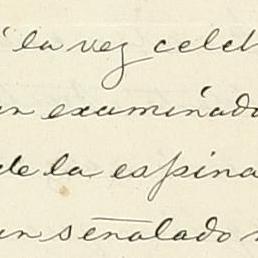 á la vez celeb
un examinado
de la espina
un señalado